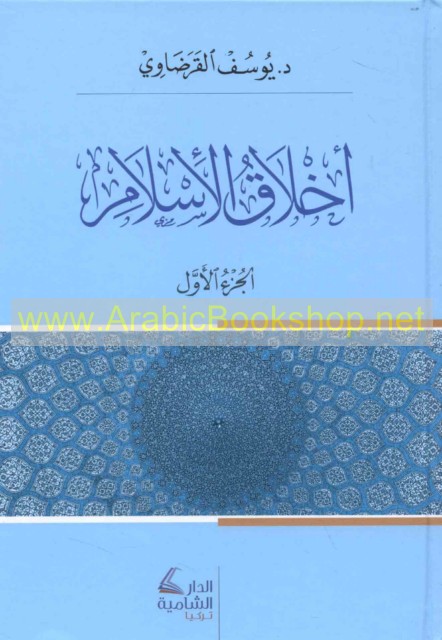 د. يُوسُفْ القَرَضَاوِيْ
أخْلَاقُ الأسْلَامِ
الجُزءُ الأَوَّل
www.ArabicBookshop.net
الدار
الشامية
تركيا